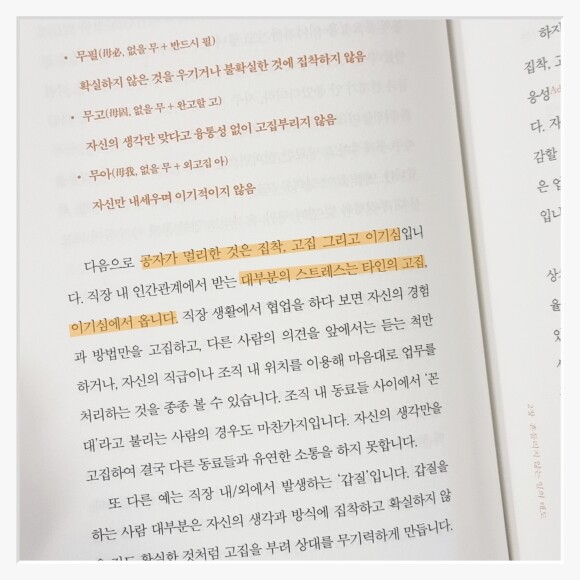 • 무필(毋必, 없을 무 + 반드시 필)
확실하지 않은 것을 우기거나 불확실한 것에 집착하지 않음
• 무고(毋固, 없을 무 + 완고할 고)
자신의 생각만 맞다고 융통성 없이 고집부리지 않음
• 무아(毋我, 없을 무 + 외고집 아)
자신만 내세우며 이기적이지 않음
다음으로 공자가 멀리한 것은 집착, 고집 그리고 이기심입니
다. 직장 내 인간관계에서 받는 대부분의 스트레스는 타인의 고집,
이기심에서 옵니다. 직장 생활에서 협업을 하다 보면 자신의 경험
과 방법만을 고집하고, 다른 사람의 의견을 앞에서는 듣는 척만
하거나, 자신의 직급이나 조직 내 위치를 이용해 마음대로 업무를
처리하는 것을 종종 볼 수 있습니다. 조직 내 동료들 사이에서 ‘꼰
대’라고 불리는 사람의 경우도 마찬가지입니다. 자신의 생각만을
고집하여 결국 다른 동료들과 유연한 소통을 하지 못합니다.
또 다른 예는 직장 내/외에서 발생하는 ‘갑질’입니다. 갑질을
하는 사람 대부분은 자신의 생각과 방식에 집착하고 확실하지 않
은 것도 확실한 것처럼 고집을 부려 상대를 무기력하게 만듭니다.
하지
집착, 고
융성
다. 자
감할
은 업
입니
상
율